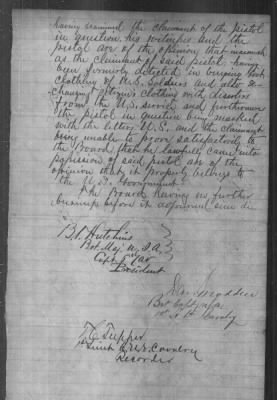 having examined the claimant of the pistol
in question his witness and the
pistol are of the opinion that inasmuch
as the claimant of said pistol having
been formerly detected in buying both
clothing of U.S. Soldiers and also ex-
changing citizen's clothing with deserters
from the U.S. service and furthermore
the pistol in question being marked
with the letters U.S. and the claimant
being unable to prove satisfactorily to
the Board, that he lawfully came into
possession of said pistol are of the
opinion that it properly belongs to
the U.S. Government.
The Board having no further
business before it adjourned sine die
B. T. Hutchins
Bvt. Maj. U.S.A.
Capt. 6" Cav
President
Bvt Capt
1st Lt 6" Cavalry
T. C. Tupper
1st Lieut 6" U.S. Cavalry
Recorder